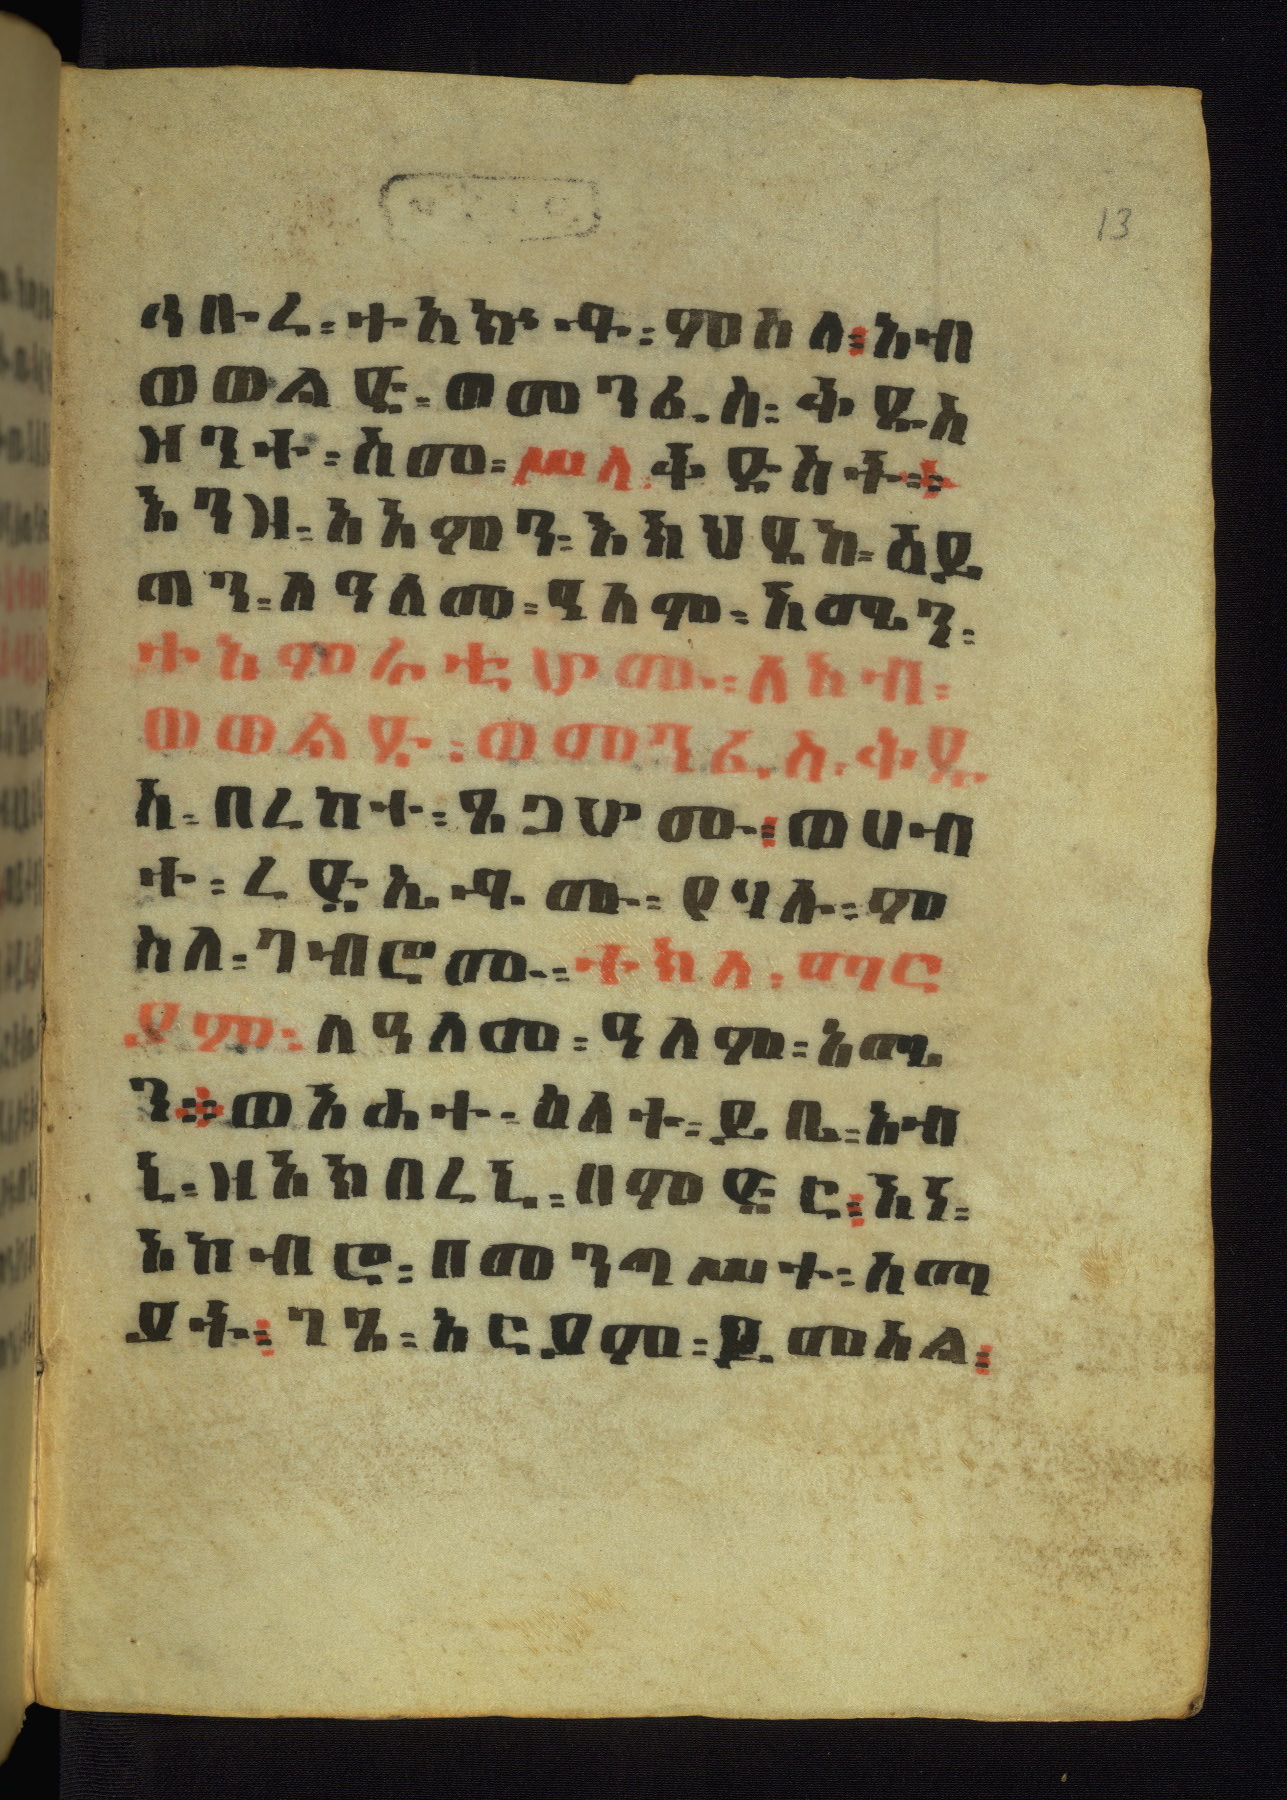 13
ዳበሩ፡ ተአኵቴ፡ ምስለ፡ አብ
ወወልድ፡ ወመንፈስ፡ ቅዱስ
ዝንቱ፡ ስመ፡ ሥላ፡ ቅድስት።
እንዘ፡ አአምን፡ እክህደከ፡ ሰይ
ጣን፡ ለዓለመ፡ ዓለም፡ አሜን፡
ተአምራቲሆሙ፡ ለአብ፡
ወወልድ፡ ወመንፈስ፡ ቅዱ
ስ፡ በረከተ፡ ጼጋሆሙ፡ ወሀብ
ተ፡ ረድኤቶሙ፡ የሃሉ፡ ምስ
ለ፡ ገብሮሙ፡ ተክለ፡ ማር
ያም፡ ለዓለመ፡ ዓለም፡ አሜ
ን። ወአሐተ፡ ዕለተ፡ ይቤ፡ አብ
ኒ፡ ዝአክበረኒ፡ በምድር፡ አነ፡
አከብሮ፡ በመንግሥተ፡ ሰማ
ያት፡ ገጼ፡ አርያም፡ ይመስል፡